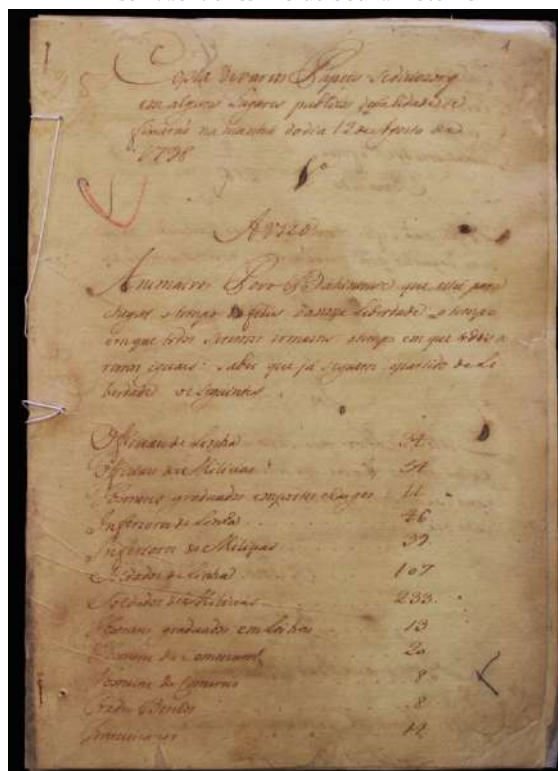 1
Copia de varios Papeis Sediciosos q
em alguns lugares publicos desta Cidade se
fixarão na manhã do dia 12 de Agosto de
1798
Avizo
Animaivos Povo Bahinense que está para
chegar o tempo feliz da nossa Liberdade: o tempo
em que todos seremos irmaons: o tempo em que todos
remos iguais: sabei que já seguem o partido da Li
berdade os seguintes
Officiaes de Linha 34
Officiaes de Milicias 54
Homens graduados em postos e cargos 11
Inferiores de Linha 46
Inferiores de Milicias 39
Soldados de Linha 107
Soldados de Milicias 233
Homens graduados em Letras 13
Homens do Commum 20
Homens do Comercio 8
Frades Bentos 8
14